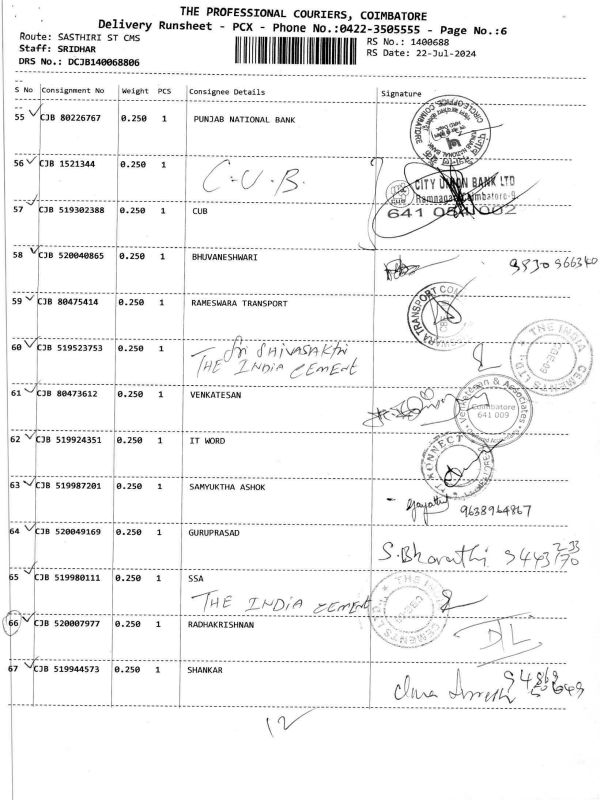 THE PROFESSIONAL COURIERS, COIMBATORE
Delivery Runsheet - PCX - Phone No.:0422-3505555 - Page No.:6
Route: SASTHIRI ST CMS
RS No.: 1400688
Staff: SRIDHAR
RS Date: 22-Jul-2024
DRS No.: DCJB140068806
S No Consignment No Weight PCS Consignee Details Signature
55 CJB 80226767 0.250 1 PUNJAB NATIONAL BANK
CIRCLE OFFICE, COIMBATORE
56 CJB 1521344 0.250 1 C.U.B.
CITY UNION BANK LTD
Ramnagar Coimbatore-9
57 CJB 519302388 0.250 1 CUB
58 CJB 520040865 0.250 1 BHUVANESHWARI
59 CJB 80475414 0.250 1 RAMESWARA TRANSPORT
60 CJB 519523753 0.250 1 Sri SHIVASAKTHI
THE INDIA CEMENT
THE INDIA CEMENTS LTD
61 CJB 80473612 0.250 1 VENKATESAN
Venkatesan & Associates
Coimbatore
641 009
62 CJB 519924351 0.250 1 IT WORD
KONNECT
63 CJB 519987201 0.250 1 SAMYUKTHA ASHOK
9638964867
64 CJB 520049169 0.250 1 GURUPRASAD
S.Bharathi
65 CJB 519980111 0.250 1 SSA
THE INDIA CEMENT
THE INDIA CEMENTS LTD
66 CJB 520007977 0.250 1 RADHAKRISHNAN
DL
67 CJB 519944573 0.250 1 SHANKAR
12